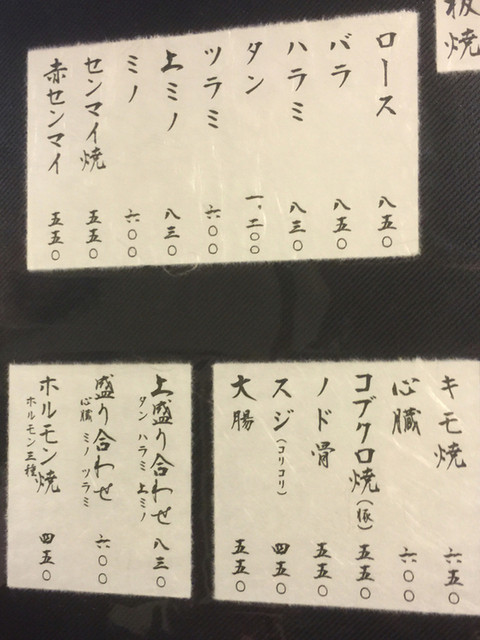 板焼
ロース 八五〇
バラ 八五〇
ハラミ 八三〇
タン 一、二〇〇
ツラミ 六〇〇
上ミノ 八三〇
ミノ 六〇〇
センマイ焼 五五〇
赤センマイ 五五〇
キモ焼 六五〇
心臓 六〇〇
コブクロ焼(豚) 五五〇
ノド骨 五五〇
スジ(コリコリ) 四五〇
大腸 五五〇
上盛り合わせ 八三〇
タン ハラミ 上ミノ
盛り合わせ 六〇〇
心臓 ミノ ツラミ
ホルモン焼 四五〇
ホルモン三種